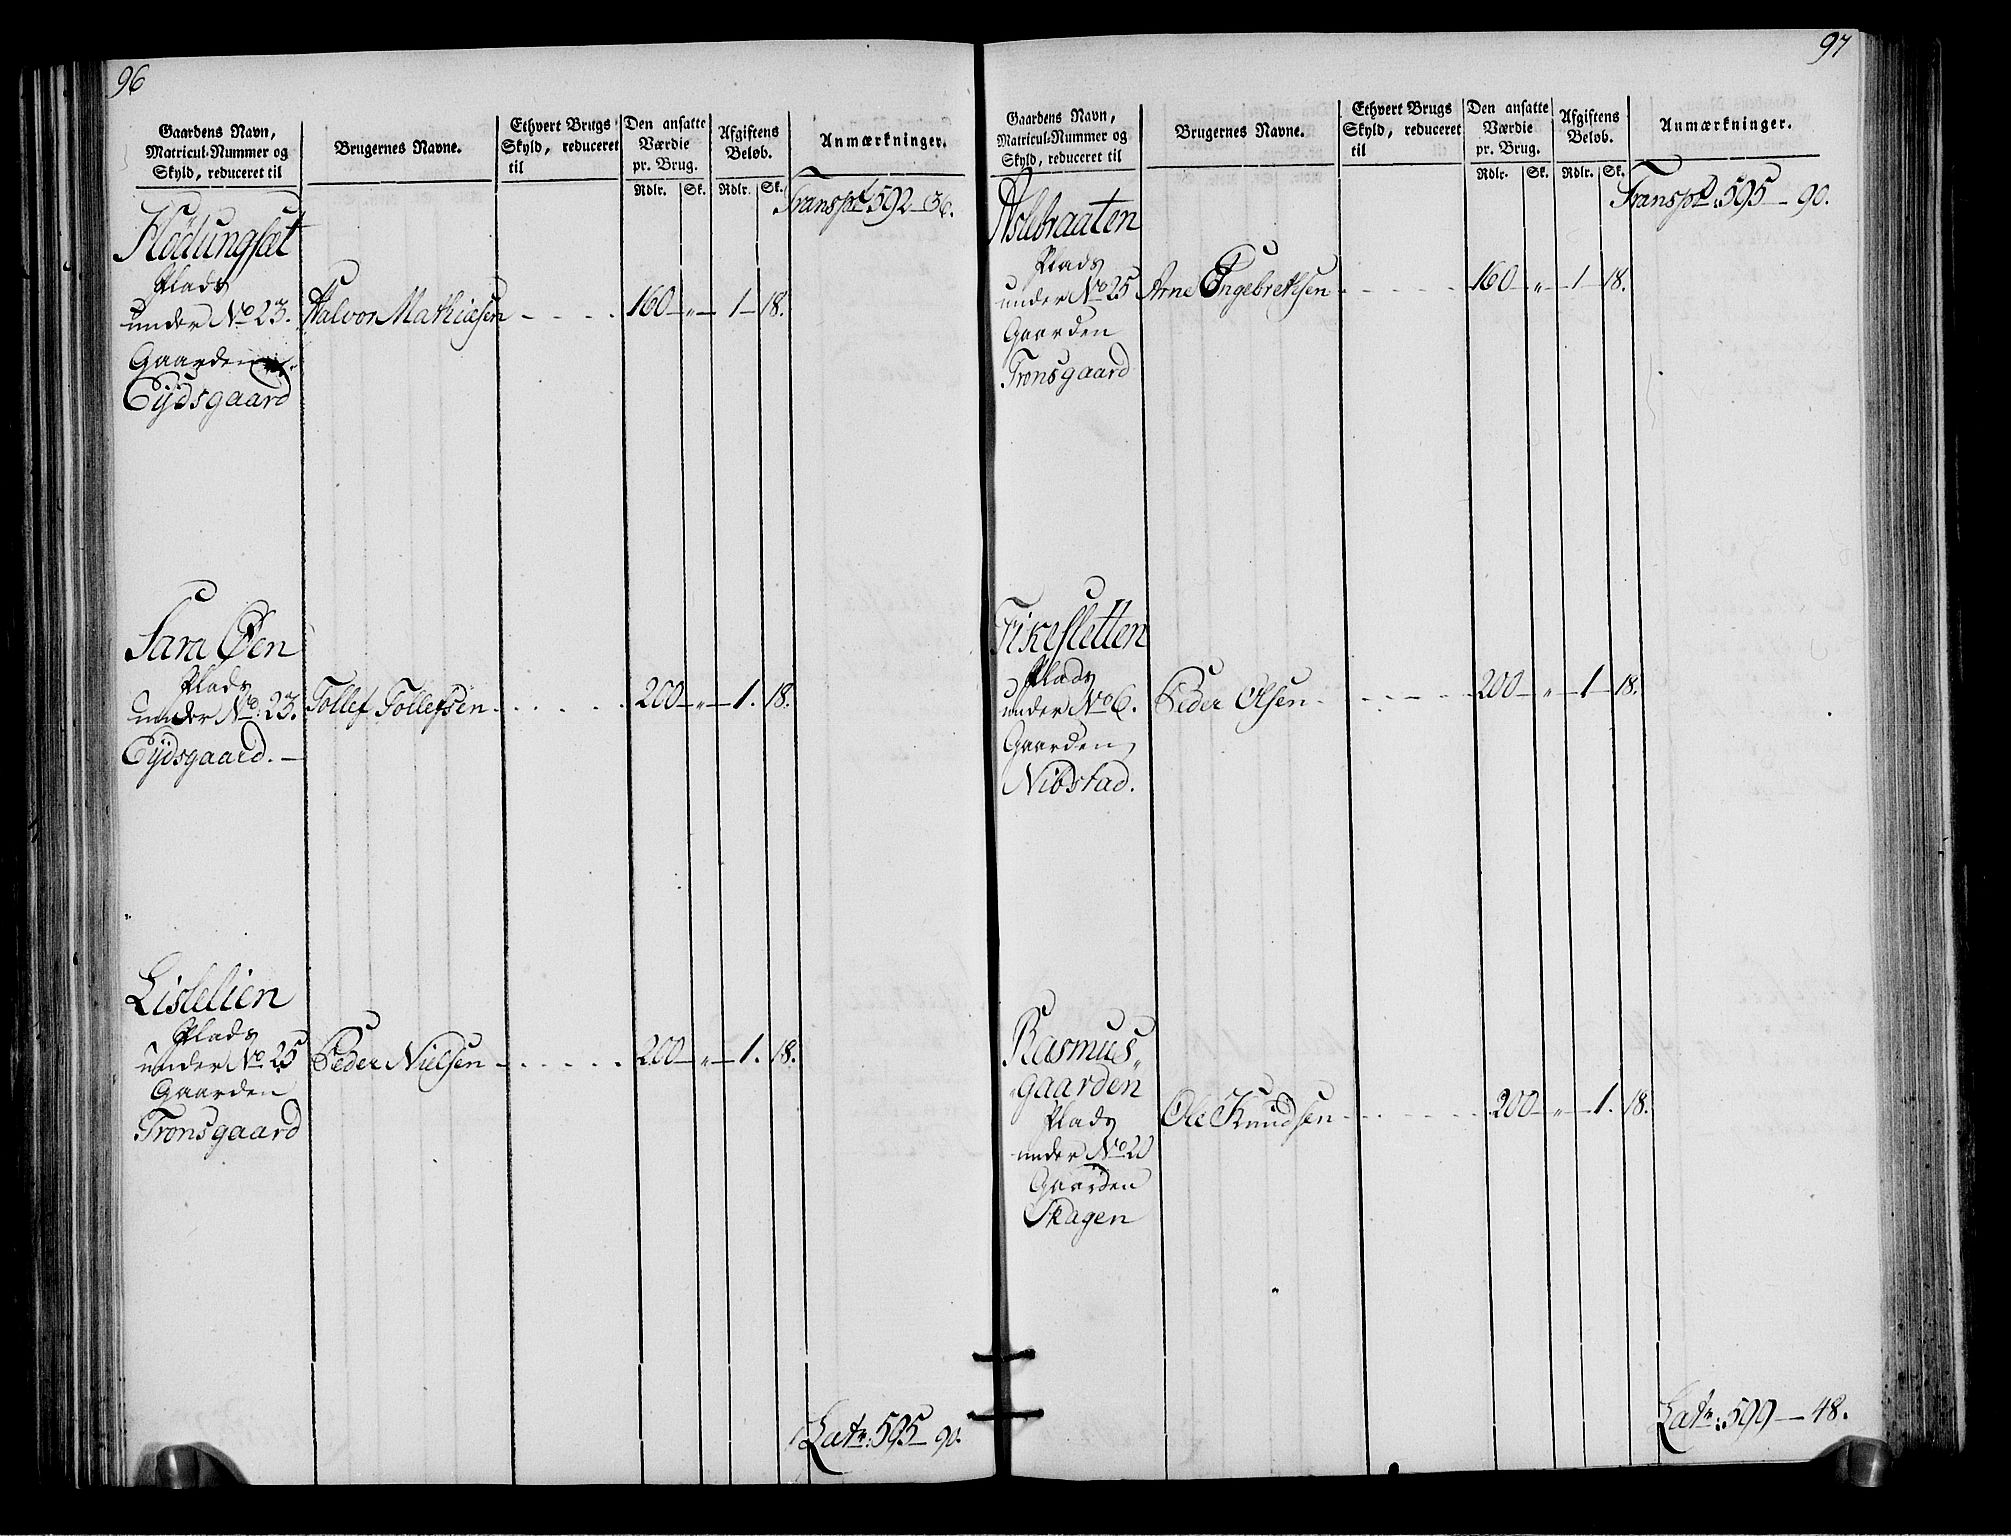 96
Gaardens Navn,
Matricul-Nummer og
Skyld, reduceret til
Brugernes Navne.
Ethvert Brugs
Skyld, reduceret
til
Den ansatte
Værdie
pr. Brug.
Afgiftens
Beløb.
Anmærkninger.
Rdlr. Sk. Rdlr. Sk.
Transpt 592 - 36.
Flødungsæt
Plads
under No 23. Halvor Mathiesen - - - - 160 - „ - 1 - 18.
Gaarden
Eÿdsgaard
Sara Øen
Plads
under No. 23. Tollef Tollefsen - - - - - 200 - „ - 1. 18.
Eÿdsgaard. -
Lislelien
Plads
under No 25 Peder Nielsen - - - - - 200 - „ - 1. 18.
Gaarden
Tronsgaard
Latr: 595 - 90.
97
Gaardens Navn,
Matricul-Nummer og
Skyld, reduceret til
Brugernes Navne.
Ethvert Brugs
Skyld, reduceret
til
Den ansatte
Værdie
pr. Brug.
Afgiftens
Beløb.
Anmærkninger.
Rdlr. Sk. Rdlr. Sk.
Transpt: 595 - 90.
Aslebraaten
Plads
under No 25 Arne Engebrethsen - - - - - 160 - „ - 1 - 18.
Gaarden
Tronsgaard
Fikesletten
Plads
under No 6. Peder Olsen - - - - - 200 - „ - 1 - 18.
Gaarden
Nibstad.
Rasmus„
gaarden
Plads Ole Knudsen - - - - - 200 - „ - 1. 18.
under No 20
Gaarden
Skagen
Latr: 599 - 48.